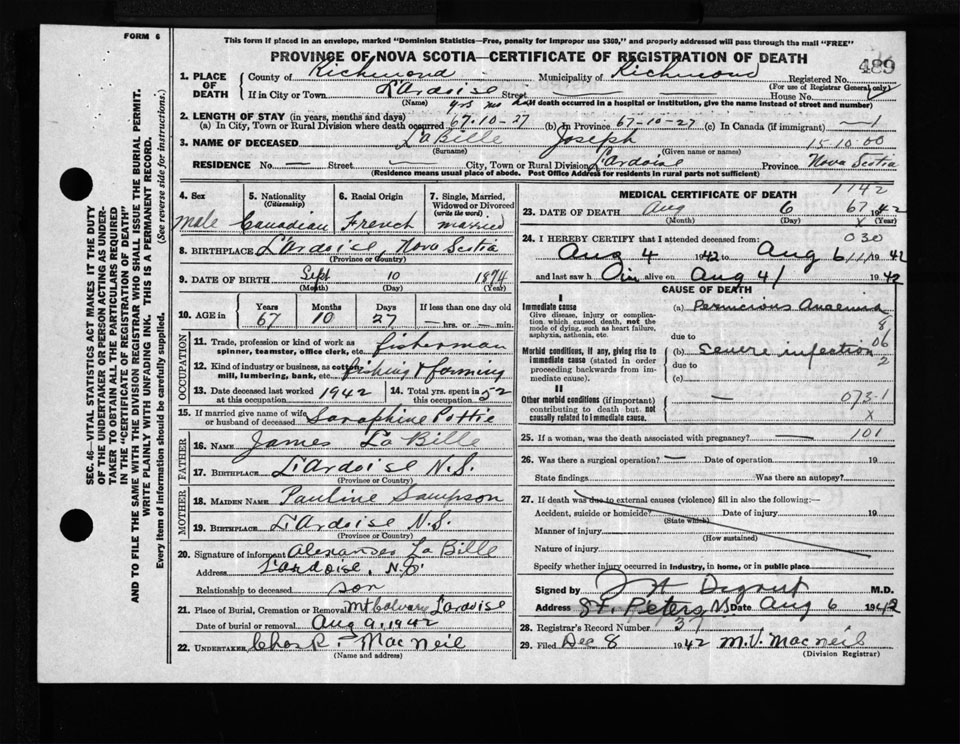 FORM 6
This form if placed in an envelope, marked "Dominion Statistics—Free, penalty for improper use $300," and properly addressed will pass through the mail "FREE"
PROVINCE OF NOVA SCOTIA—CERTIFICATE OF REGISTRATION OF DEATH
489
1. PLACE OF DEATH
County of Richmond Municipality of Richmond Registered No.
(For use of Registrar General only)
If in City or Town L'Ardoise Street House No.
(Name) (If death occurred in a hospital or institution, give the name instead of street and number)
yrs mo days
2. LENGTH OF STAY (in years, months and days)
(a) In City, Town or Rural Division where death occurred 67-10-27 (b) In Province 67-10-27 (c) In Canada (if immigrant) —
3. NAME OF DECEASED LaBille Joseph 15.10.00
(Surname) (Given name or names)
RESIDENCE No. — Street — City, Town or Rural Division L'ardoise Province Nova Scotia
(Residence means usual place of abode. Post Office Address for residents in rural parts not sufficient)
SEC. 46—VITAL STATISTICS ACT MAKES IT THE DUTY
OF THE UNDERTAKER OR PERSON ACTING AS UNDER-
TAKER TO OBTAIN ALL THE PARTICULARS REQUIRED
IN THE "CERTIFICATE OF REGISTRATION OF DEATH"
AND TO FILE THE SAME WITH THE DIVISION REGISTRAR WHO SHALL ISSUE THE BURIAL PERMIT.
WRITE PLAINLY WITH UNFADING INK. THIS IS A PERMANENT RECORD.
Every item of information should be carefully supplied. (See reverse side for instructions.)
4. Sex 5. Nationality (Citizenship) 6. Racial Origin 7. Single, Married, Widowed or Divorced (write the word)
Male Canadian French married
8. BIRTHPLACE L'Ardoise, Nova Scotia
(Province or Country)
9. DATE OF BIRTH Sept 10 1874
(Month) (Day) (Year)
10. AGE in Years Months Days If less than one day old
67 10 27 hrs. or — min.
OCCUPATION
11. Trade, profession or kind of work as spinner, teamster, office clerk, etc. fisherman
12. Kind of industry or business, as cotton mill, lumbering, bank, etc. fishing & farming
13. Date deceased last worked at this occupation 1942 14. Total yrs. spent in this occupation 52
15. If married give name of wife or husband of deceased Saraphine Pottie
FATHER
16. NAME James La Bille
17. BIRTHPLACE L'Ardoise N.S.
(Province or Country)
MOTHER
18. MAIDEN NAME Pauline Sampson
19. BIRTHPLACE L'Ardoise N.S.
(Province or Country)
20. Signature of informant Alexander La Bille
Address L'ardoise, N.S.
Relationship to deceased son
21. Place of Burial, Cremation or Removal Mt Calvary L'ardoise
Date of burial or removal Aug 9, 1942
22. UNDERTAKER Chas R. MacNeil
(Name and address)
1142
MEDICAL CERTIFICATE OF DEATH
23. DATE OF DEATH Aug 6 67 1942
(Month) (Day) (Year)
X
030
24. I HEREBY CERTIFY that I attended deceased from:
Aug 4 1942 to Aug 6 1942
and last saw him alive on Aug 4 1942
CAUSE OF DEATH
I
Immediate cause
Give disease, injury or complication which caused death, not the mode of dying, such as heart failure, asphyxia, asthenia, etc.
(a) Pernicious Anaemia
8
due to
06
Morbid conditions, if any, giving rise to immediate cause (stated in order proceeding backwards from immediate cause).
(b) Severe infection
due to
2
(c)
II
Other morbid conditions (if important) contributing to death but not causally related to immediate cause.
—
073.1
X
25. If a woman, was the death associated with pregnancy? — 101
26. Was there a surgical operation? — Date of operation 19
State findings Was there an autopsy?
27. If death was due to external causes (violence) fill in also the following:—
Accident, suicide or homicide? Date of injury 19
(State which)
Manner of injury
(How sustained)
Nature of injury
Specify whether injury occurred in industry, in home, or in public place
Signed by M.D.
Address St. Peters NS Date Aug 6 1942
28. Registrar's Record Number 37
29. Filed Dec 8 1942 M.V. MacNeil
(Division Registrar)